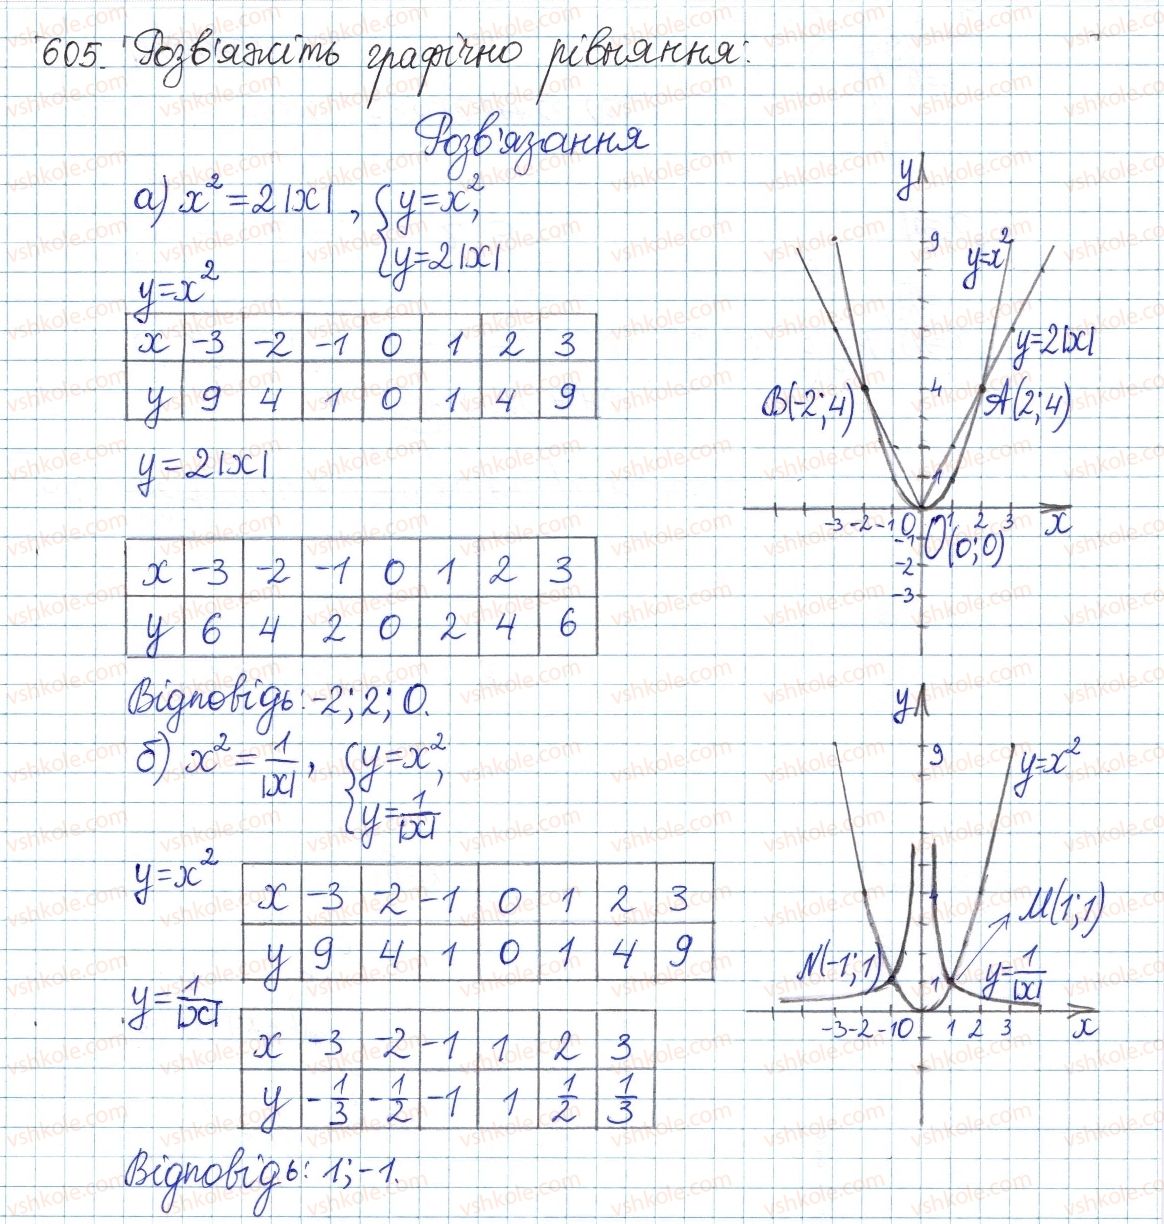 605. Розв'яжіть графічно рівняння:
Розв'язання
а) x² = 2|x|, { y = x²,
y = 2|x|.
y = x²
x -3 -2 -1 0 1 2 3
y 9 4 1 0 1 4 9
y = 2|x|
x -3 -2 -1 0 1 2 3
y 6 4 2 0 2 4 6
Відповідь: -2; 2; 0.
y
9
y=x²
y=2|x|
B(-2;4) 4 A(2;4)
1
-3 -2 -1 0 1 2 3 x
O(0;0)
-1
-2
-3
б) x² = 1/|x|, { y = x²,
y = 1/|x|
y = x²
x -3 -2 -1 0 1 2 3
y 9 4 1 0 1 4 9
y = 1/|x|
x -3 -2 -1 1 2 3
y -1/3 -1/2 -1 1 1/2 1/3
Відповідь: 1; -1.
y
9
y=x²
4
M(1;1)
N(-1;1) 1 y=1/|x|
-3 -2 -1 0 1 2 3 x
vshkole.com